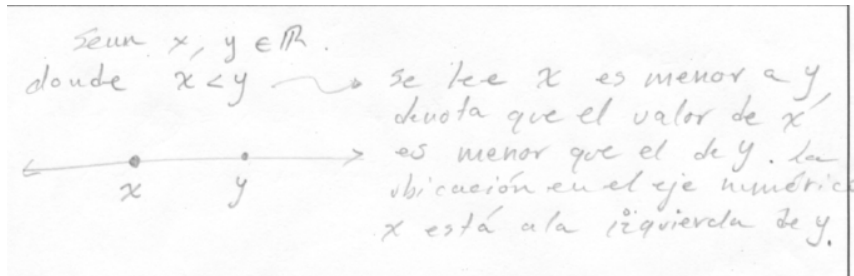 Sean x, y ∈ ℝ.
donde x < y → se lee x es menor a y,
denota que el valor de x
es menor que el de y. La
ubicación en el eje numérico
x está a la izquierda de y.
x y